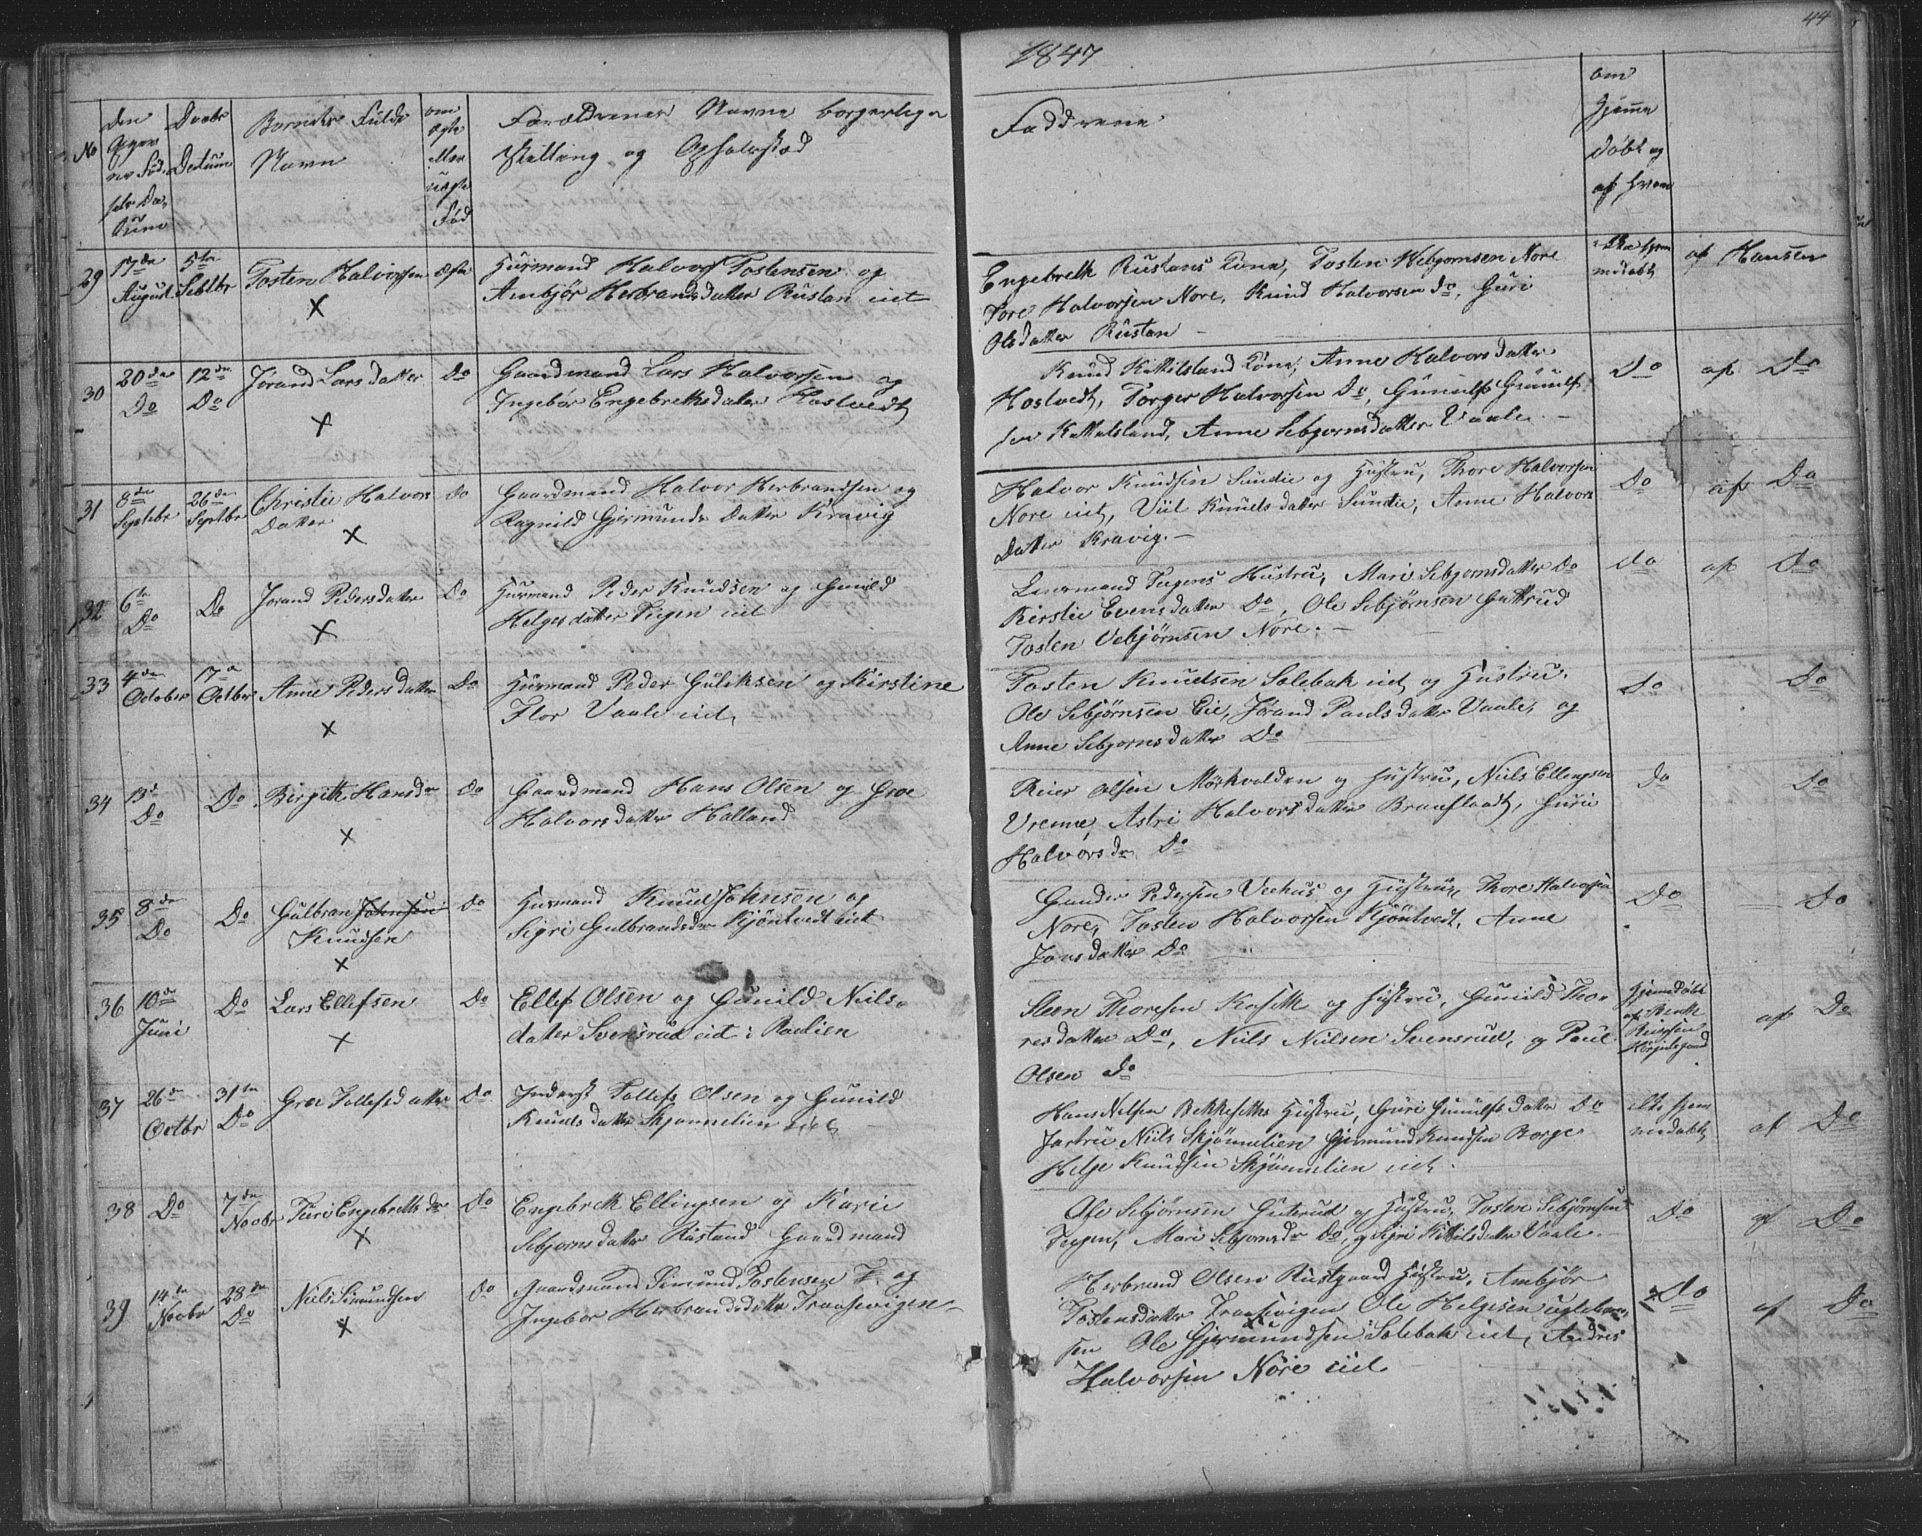 44
1847
No
Den
Døbe
Datum
Barnets Fulde
Navn
om
ægte
eller
uægte
Fød
Forældrenes Navne borgerlige
Stilling og Opholdsted
Faddrene
om
Hjemme
døbt og
af Hvem
29 17de 5te Tosten Halvorsen ægte Huusmand Halvor Tostensen og
August Septbr Ambjør Herbrandsdatter Rustan eiet
X
Engebreth Rustans Kone, Tosten Webjørnsen Nore
Tore Halvorsen Nore, Knud Halvorsen Do, Guri
Olsdatter Rustan
af Hansen
30 20de 12de Jorand Larsdatter Do Gaardmand Lars Halvorsen og
Do Do Ingebør Engebrethsdatter Hostvedt
X
Knud Kittilsland Kone, Anne Halvorsdatter
Hostvedt, Torger Halvorsen Do, Gunulf Gunulf
sen Kittilsland, Anne Sebjørnsdatter Vaale
Do af Do
31 8de 26de Christie Halvors Do Gaardmand Halvor Herbrandsen og
Septebr Septbr datter Ragnild Gjermunds datter Kravig
X
Halvor Knudsen Sundie og Hustru, Thore Halvorsen
Nore eiet, Knudsdatter Sundie, Anne Halvors
datter Kravig.
Do af Do
32 6te Do Jorand Pedersdatter Do Huusmand Peder Knudsen og Gunild
Do Helgesdatter Teigen eiet
X
Teigens Hustru, Mari Sebjornsdatter Do
Kirstie Evensdatter Do, Ole Sebjørnsen Guttrud
Tosten Vebjørnsen Nore.
do af Do
33 4de 17de Anne Pedersdatter Do Huusmand Peder Guliksen og Kirstine
October Octbr Flor Vaale eiet
X
Tosten Knudsen Solebak eiet og Hustru.
Ole Sebjørnsen Eie, Jørand Paulsdatter Vaale, og
Anne Sebjornsdatter Do
Do Do
34 13de Do Birgith Hansdr Do Gaardmand Hans Olsen og Groe
Do Halvorsdatter Halland
X
Reier Olsen Mørkvolden og Hustru, Niels Ellingsen
Vrenne, Astri Halvorsdatter, Guri
Halvorsdr Do
Do Do
35 8de Do Gulbran Johnsen Do Huusmand Knud Johnsen og
Do Knudsen Sigri Gulbrandsdr Kjøntvedt eiet
X
Gunder Pedersen Veehus og Hustru, Thore Halvorsen
Nore, Tosten Halvorsen Kjøntvedt, Anne
Jonsdatter Do
Do Do
36 10de Do Lars Ellefsen Do Ellef Olsen og Gunild Niels-
Juni datter Svensrud eiet i Raelien
X
Steen Thoresen og Hustru, Gunild Tho-
resdatter Do, Niels Nielsen Svensrud, og Paul
Olsen do
Hjemdøbt
af Do
37 26de 31te Groe Tollefsdatter Do Inderst Tollef Olsen og Gunild
Octbr Do Knudsdatter Skjønnelien eiet
Hans Nelsen Bekkesettes Hustru, Guri Gunulfsdatter Do
Niels Skjønnelien Gjermund Knudsen Borge
Helge Knudsen Skjønnelien eiet.
ikke hjem
medøbt
af Do
38 Do 7de Turi Engebrethsdr Do Engebreth Ellingsen og Karie
Novbr Sebjornsdatter Rustand Gaardmand
X
Ole Sebjørnsen Guterud og Hustru, Tosten Sebjørnsen
Teigen, Mari Sebjornsdr Do, og Sigri Kittilsdatter Vaale.
Do af Do
39 14de 28de Niels Simundsen Do Gaardmand Simund Tostensen T. og
Novbr Do Ingebor Herbrandsdatter Traasevigen
X
Herbrand Olsen Rustgaard Hustru, Ambjør
Tostensdatter Traasevigen Ole Helgesen
sen Ole Gjermundsen Solebak eiet, Andreis
Halvorsen Nore eiet
Do af Do